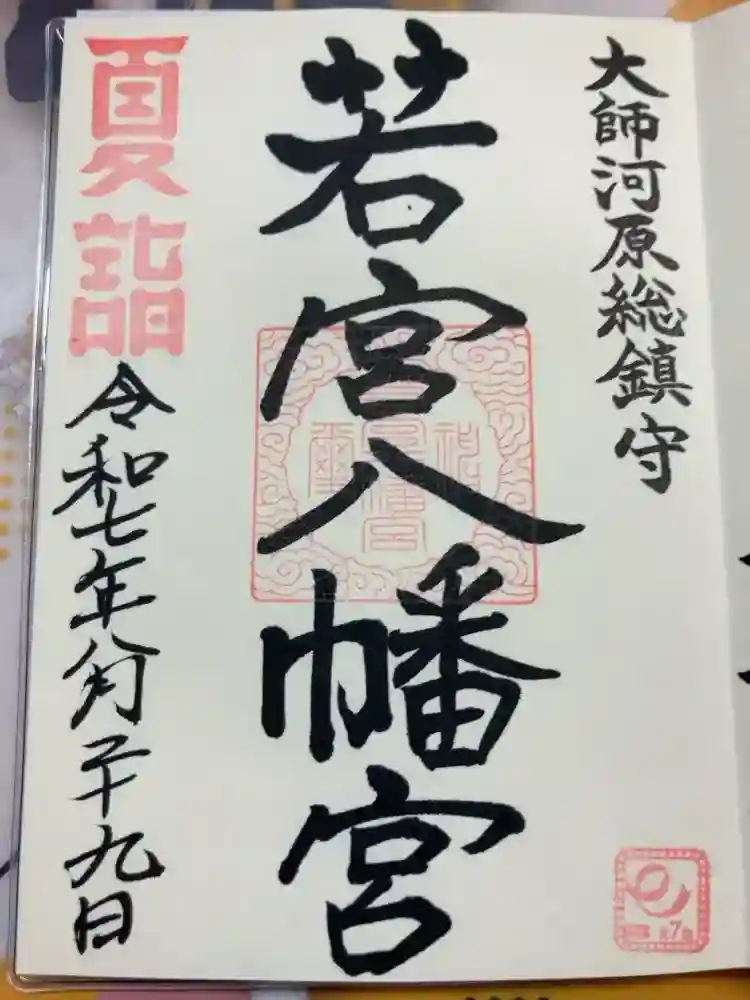 大師河原総鎮守
若宮八幡宮
夏詣
令和七年八月二十九日